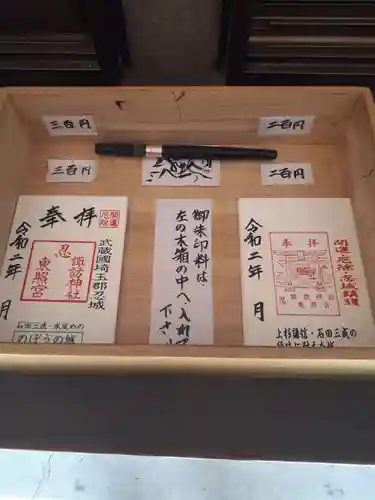 三百円
二百円
三百円
二百円
奉拝
開運
厄除
武蔵國埼玉郡忍城
忍
諏訪神社
東照宮
令和二年 月
石田三成・水攻めの
のぼうの城
御朱印料は
左の木箱の中へ入れて
下さい
開運・厄除・忍城鎮護
奉拝
令和二年 月
上杉謙信・石田三成の